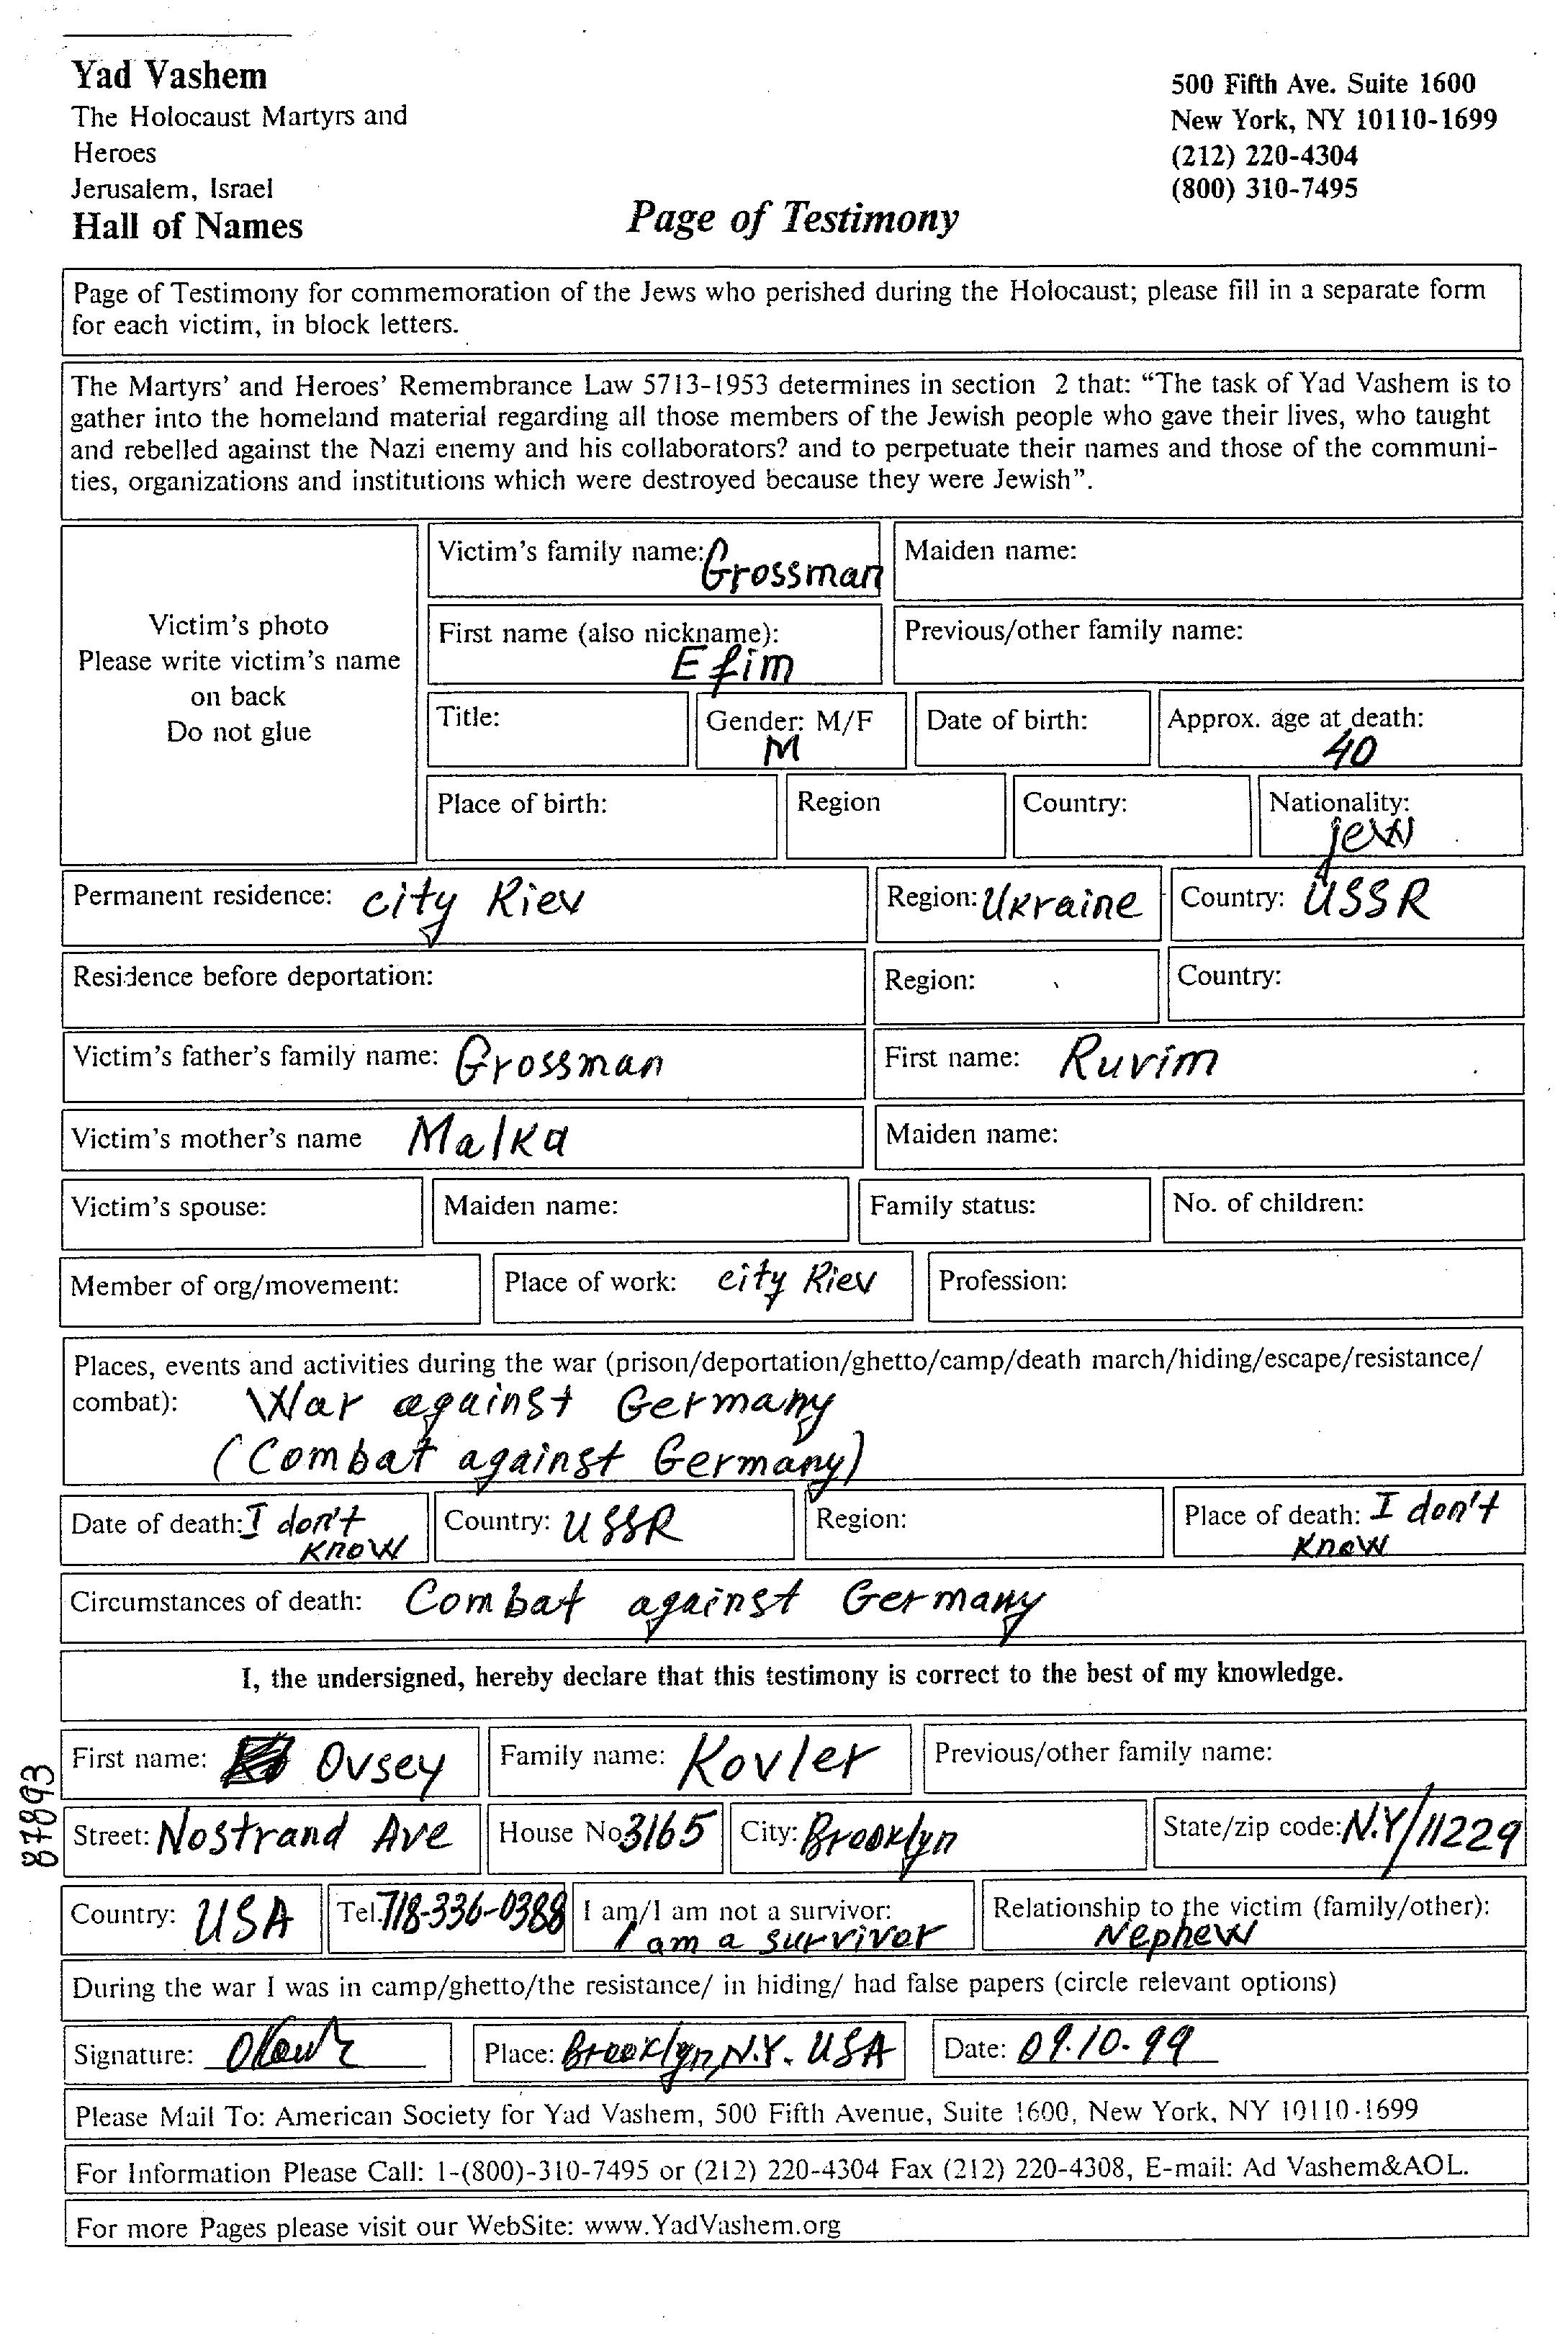 Yad Vashem
The Holocaust Martyrs and
Heroes
Jerusalem, Israel
Hall of Names
500 Fifth Ave. Suite 1600
New York, NY 10110-1699
(212) 220-4304
(800) 310-7495
Page of Testimony
Page of Testimony for commemoration of the Jews who perished during the Holocaust; please fill in a separate form
for each victim, in block letters.
The Martyrs' and Heroes' Remembrance Law 5713-1953 determines in section 2 that: "The task of Yad Vashem is to
gather into the homeland material regarding all those members of the Jewish people who gave their lives, who taught
and rebelled against the Nazi enemy and his collaborators? and to perpetuate their names and those of the communi-
ties, organizations and institutions which were destroyed because they were Jewish".
Victim's photo
Please write victim's name
on back
Do not glue
Victim's family name: Grossman
Maiden name:
First name (also nickname):
Efim
Previous/other family name:
Title:
Gender: M/F
M
Date of birth:
Approx. age at death:
40
Place of birth:
Region
Country:
Nationality:
jew
Permanent residence: city Kiev
Region: Ukraine
Country: USSR
Residence before deportation:
Region:
Country:
Victim's father's family name: Grossman
First name: Ruvim
Victim's mother's name Malka
Maiden name:
Victim's spouse:
Maiden name:
Family status:
No. of children:
Member of org/movement:
Place of work: city Kiev
Profession:
Places, events and activities during the war (prison/deportation/ghetto/camp/death march/hiding/escape/resistance/
combat): War against Germany
(Combat against Germany)
Date of death: I don't
know
Country: USSR
Region:
Place of death: I don't
know
Circumstances of death: Combat against Germany
I, the undersigned, hereby declare that this testimony is correct to the best of my knowledge.
First name: Ovsey
Family name: Kovler
Previous/other family name:
87893
Street: Nostrand Ave
House No 3165
City: Brooklyn
State/zip code: N.Y/11229
Country: USA
Tel. 718-336-0388
I am/I am not a survivor:
I am a survivor
Relationship to the victim (family/other):
Nephew
During the war I was in camp/ghetto/the resistance/ in hiding/ had false papers (circle relevant options)
Signature:
Place: Brooklyn, N.Y. USA
Date: 09.10.99
Please Mail To: American Society for Yad Vashem, 500 Fifth Avenue, Suite 1600, New York, NY 10110-1699
For Information Please Call: 1-(800)-310-7495 or (212) 220-4304 Fax (212) 220-4308, E-mail: Ad Vashem&AOL.
For more Pages please visit our WebSite: www.YadVashem.org